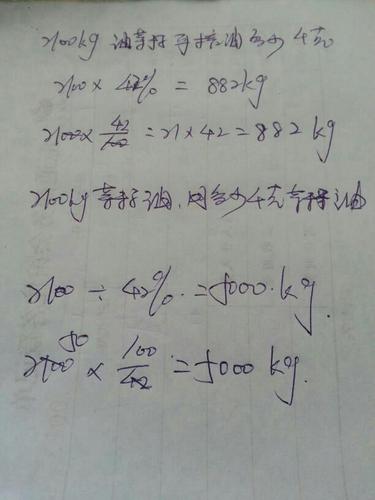 2100kg 油菜籽可榨油多少千克
2100 × 42% = 882kg
2100 × 42/100 = 21 × 42 = 882 kg
2100kg 菜籽油，用多少千克菜籽油
2100 ÷ 42% = 5000 kg.
50
2100 × 100/42 = 5000 kg.